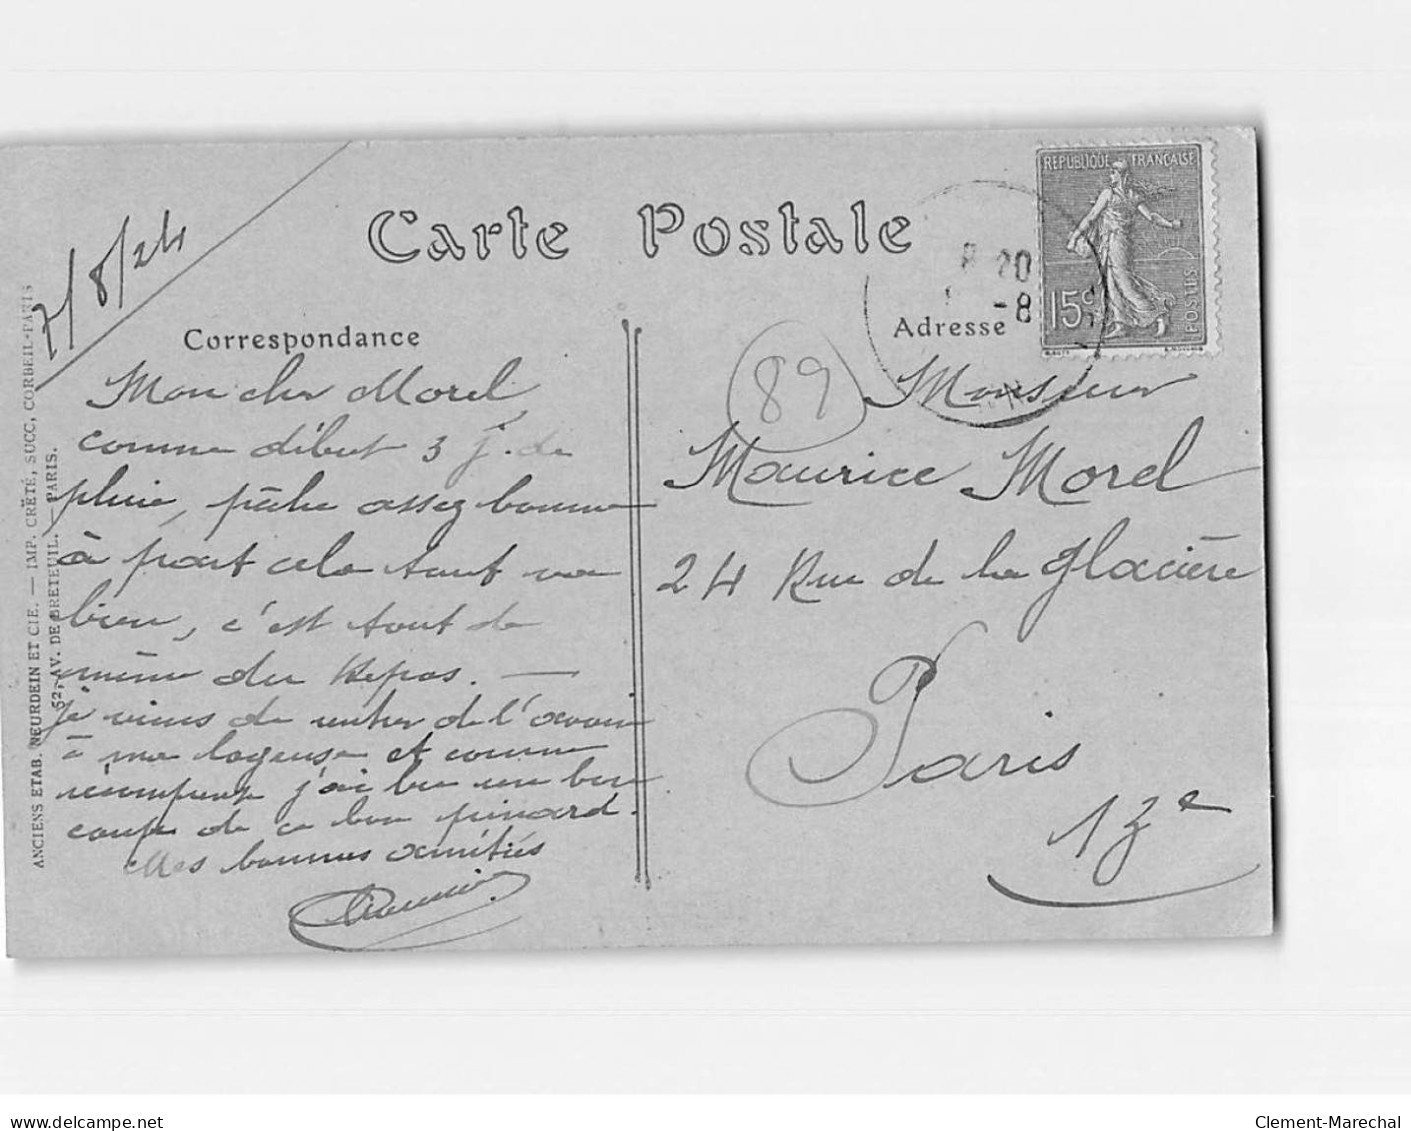 7/8/24
Carte Postale
REPUBLIQUE FRANÇAISE
15c
POSTES
8 20
-8
Correspondance
Adresse
89
Mon cher Morel,
comme début 3 j. de
pluie, pêche assez bonne
à part cela tout va
bien, c'est tout de
même du Repos. —
je viens de rentrer de l'
à ma logeuse et comme
récompense j'ai bu un bon
coup de ce bon pinard.
Mes bonnes amitiés
Monsieur
Maurice Morel
24 Rue de la Glacière
Paris
13e
ANCIENS ETAB. NEURDEIN ET CIE. — IMP. CRÉTÉ, SUCC, CORBEIL-PARIS
52, AV. DE BRETEUIL. — PARIS.
www.delcampe.net
Clement-Marechal